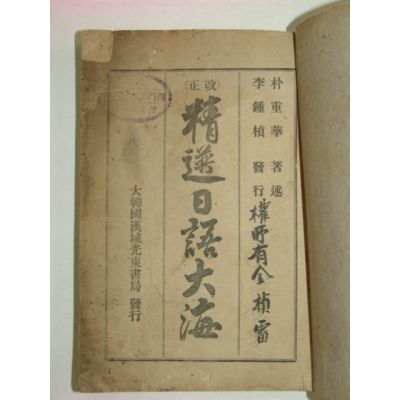 朴重華 著述
李鍾楨 發行
權所有金楨雷
(改正)
精選日語大海
大韓國漢城光東書局 發行